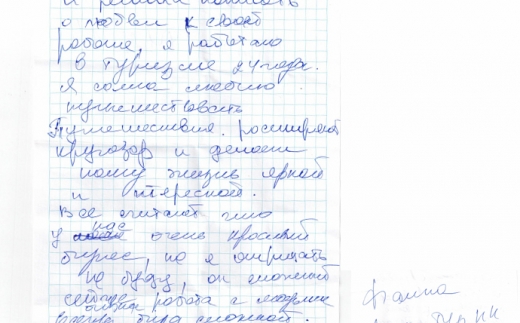 и решила написать
о любви к своей
работе, я работаю
в туризме 24 года.
Я сама люблю
путешествовать
Путешествия расширяют
кругозор и делают
нашу жизнь яркой
и интересной.
Все считают что
у нас очень красивый
бизнес, но я отрицать
не буду, он сложный
работа с людьми
всегда была сложной.